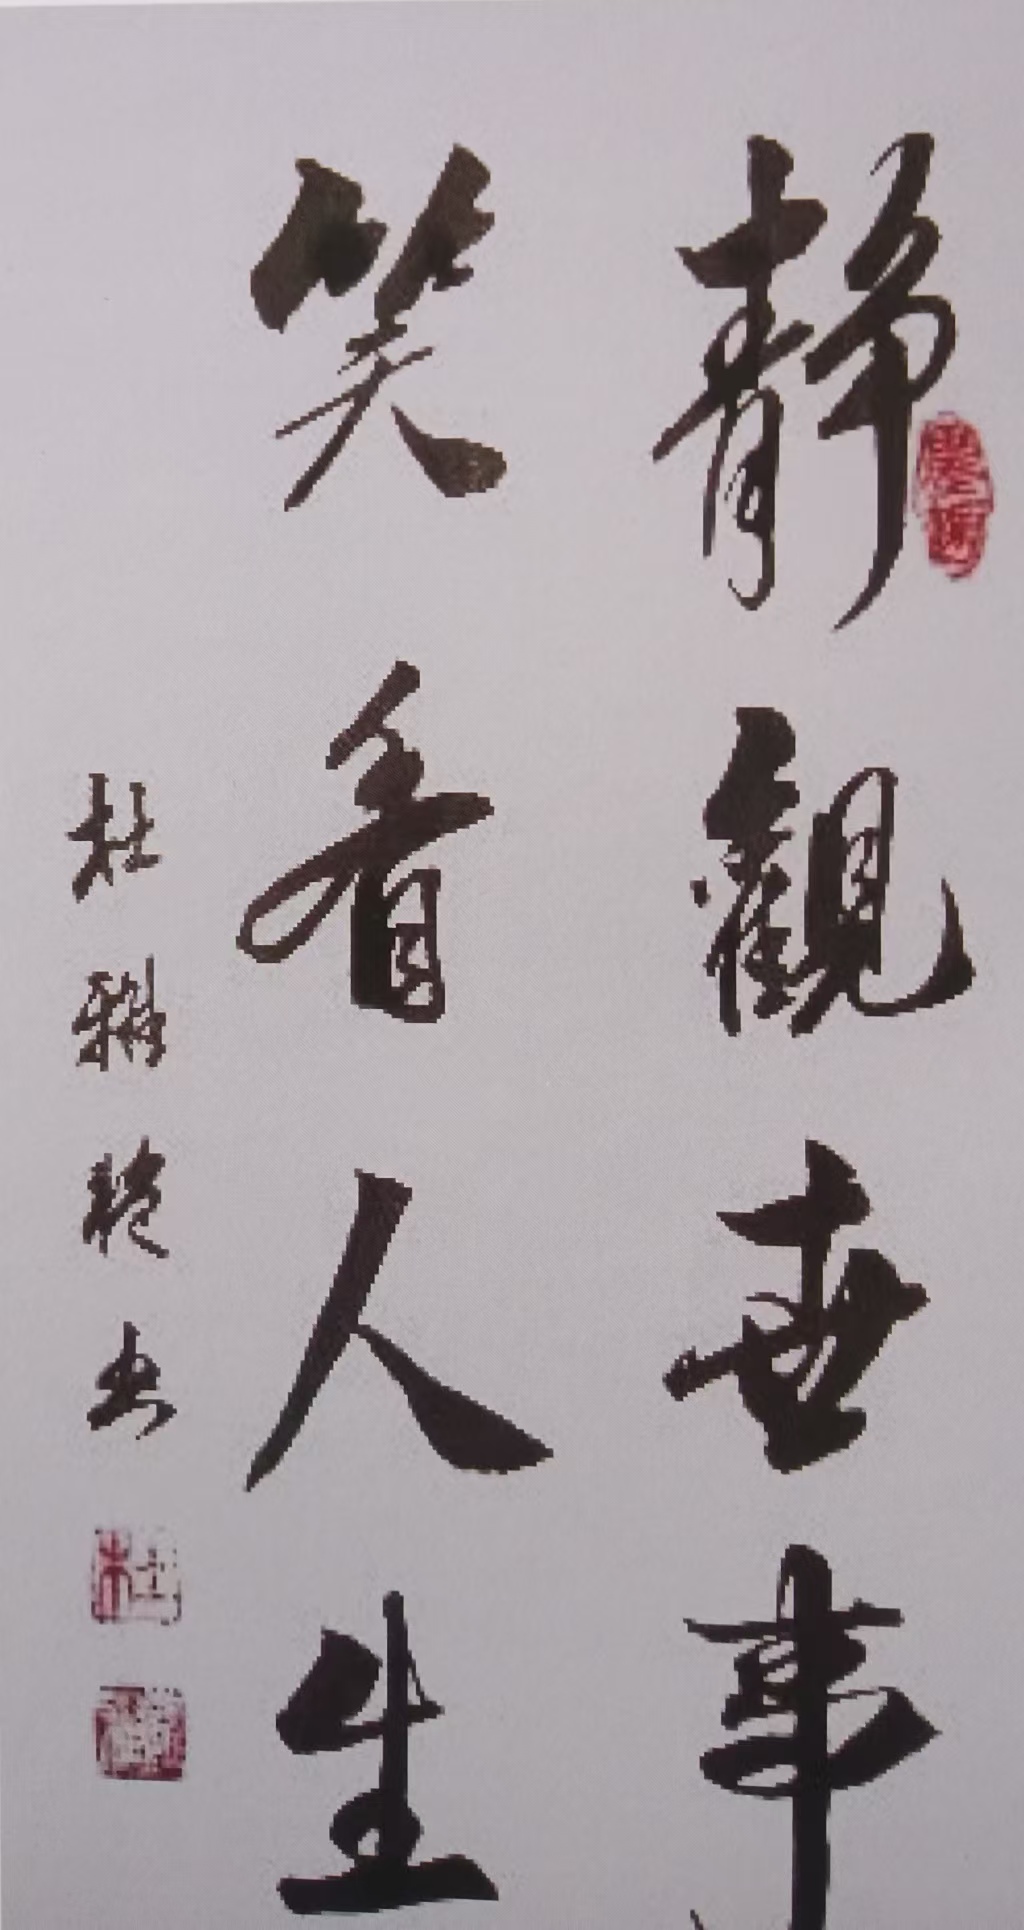 靜觀世事
笑看人生
杜
書
杜